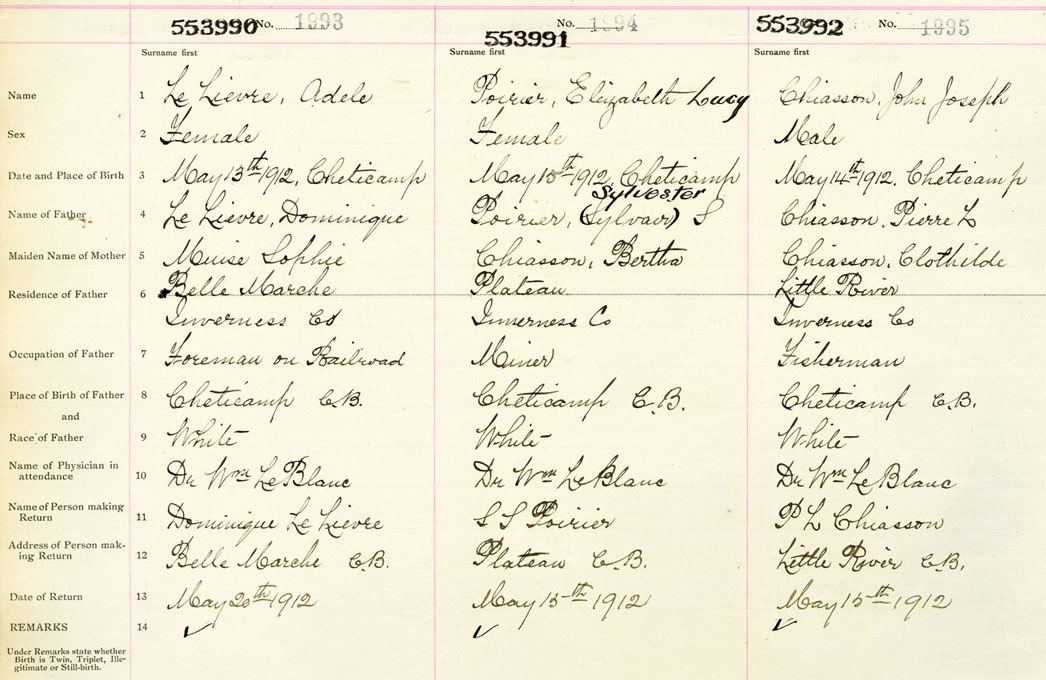 553990 No. 1993 553991 No. 1994 553992 No. 1995
Surname first Surname first Surname first
Name 1 Le Lievre, Adele Poirier, Elizabeth Lucy Chiasson, John Joseph
Sex 2 Female Female Male
Date and Place of Birth 3 May 13th 1912, Cheticamp May 15th 1912, Cheticamp May 14th 1912, Cheticamp
Sylvester
Name of Father 4 Le Lievre, Dominique Poirier, (Sylvain) S Chiasson, Pierre L
Maiden Name of Mother 5 Muise Sophie Chiasson, Bertha Chiasson, Clothilde
Residence of Father 6 Belle Marche Plateau Little River
Inverness Co Inverness Co Inverness Co
Occupation of Father 7 Foreman on Railroad Miner Fisherman
Place of Birth of Father 8 Cheticamp C.B. Cheticamp C.B. Cheticamp C.B.
and
Race of Father 9 White White White
Name of Physician in
attendance 10 Dr Wm LeBlanc Dr Wm LeBlanc Dr Wm LeBlanc
Name of Person making
Return 11 Dominique Le Lievre S S Poirier P L Chiasson
Address of Person mak-
ing Return 12 Belle Marche C.B. Plateau C.B. Little River C.B.
Date of Return 13 May 20th 1912 May 15th 1912 May 15th 1912
REMARKS 14 ✓ ✓ ✓
Under Remarks state whether
Birth is Twin, Triplet, Ille-
gitimate or Still-birth.